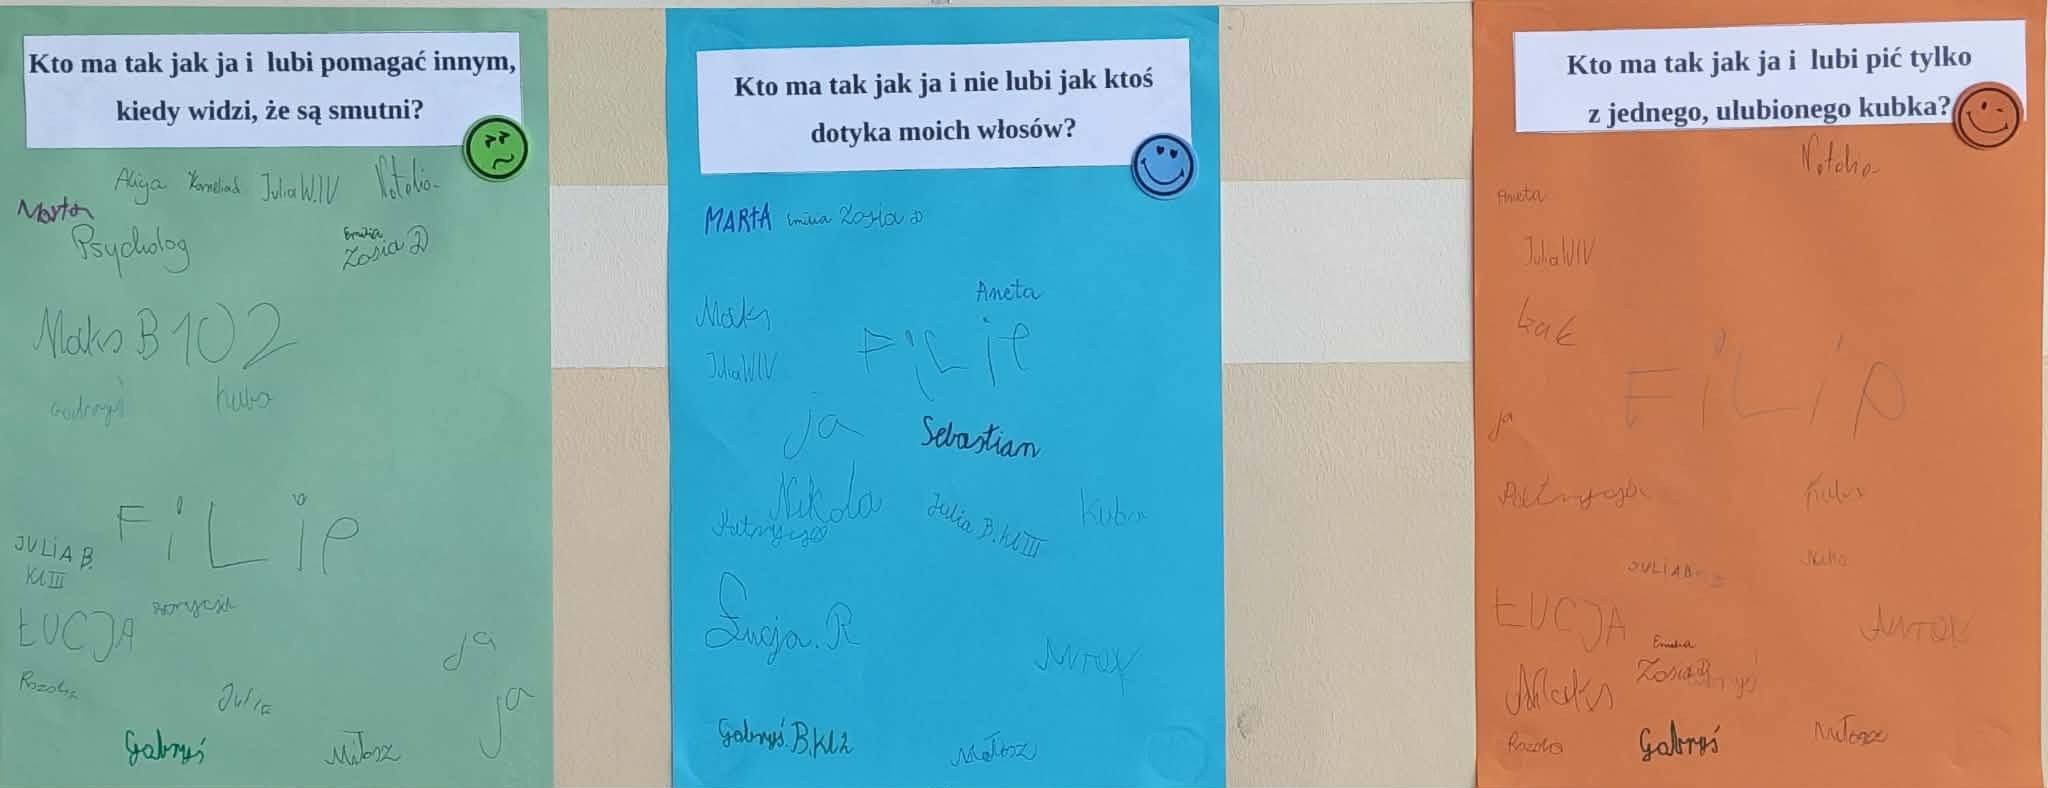 Kto ma tak jak ja i lubi pomagać innym,
kiedy widzi, że są smutni?
Alicja Kornelia S Julia W.IV Natalia
Marta
Psycholog
Emilia
Zosia D
Maks B 102
Gabryś Kuba
FiLiP
JULIA B.
Kl III
ŁUCJA
ja
Rozalia Julia
ja
Gabryś Miłosz
Kto ma tak jak ja i nie lubi jak ktoś
dotyka moich włosów?
MARTA Emilia Zosia D
Aneta
Maks
FiLiP
Julia W IV
ja Sebastian
Nikola
Julia B. kl III Kuba
Patrycja
Łucja. R
ANTOX
Gabryś. B. Kl 2 Miłosz
Kto ma tak jak ja i lubi pić tylko
z jednego, ulubionego kubka?
Natalia
Aneta
Julia W IV
FiLiP
ja
Patrycja
JULIA B
ŁUCJA ANTOX
Emilia
Zosia D
Maks
Rozalia Gabryś Miłosz